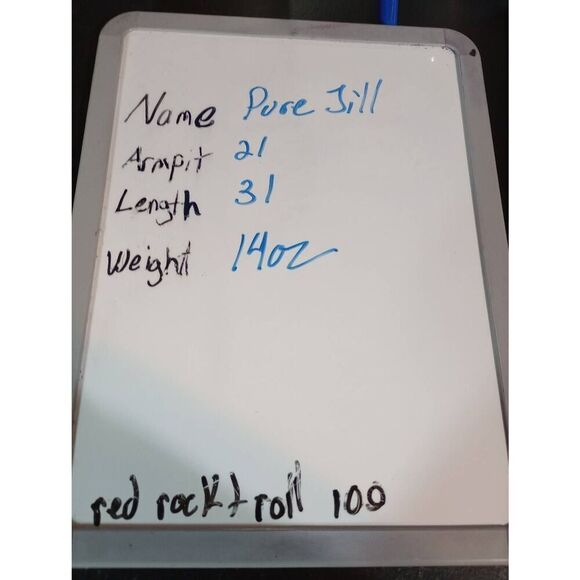 Name Pure Jill
Armpit 21
Length 31
Weight 14oz
red rock & roll 100